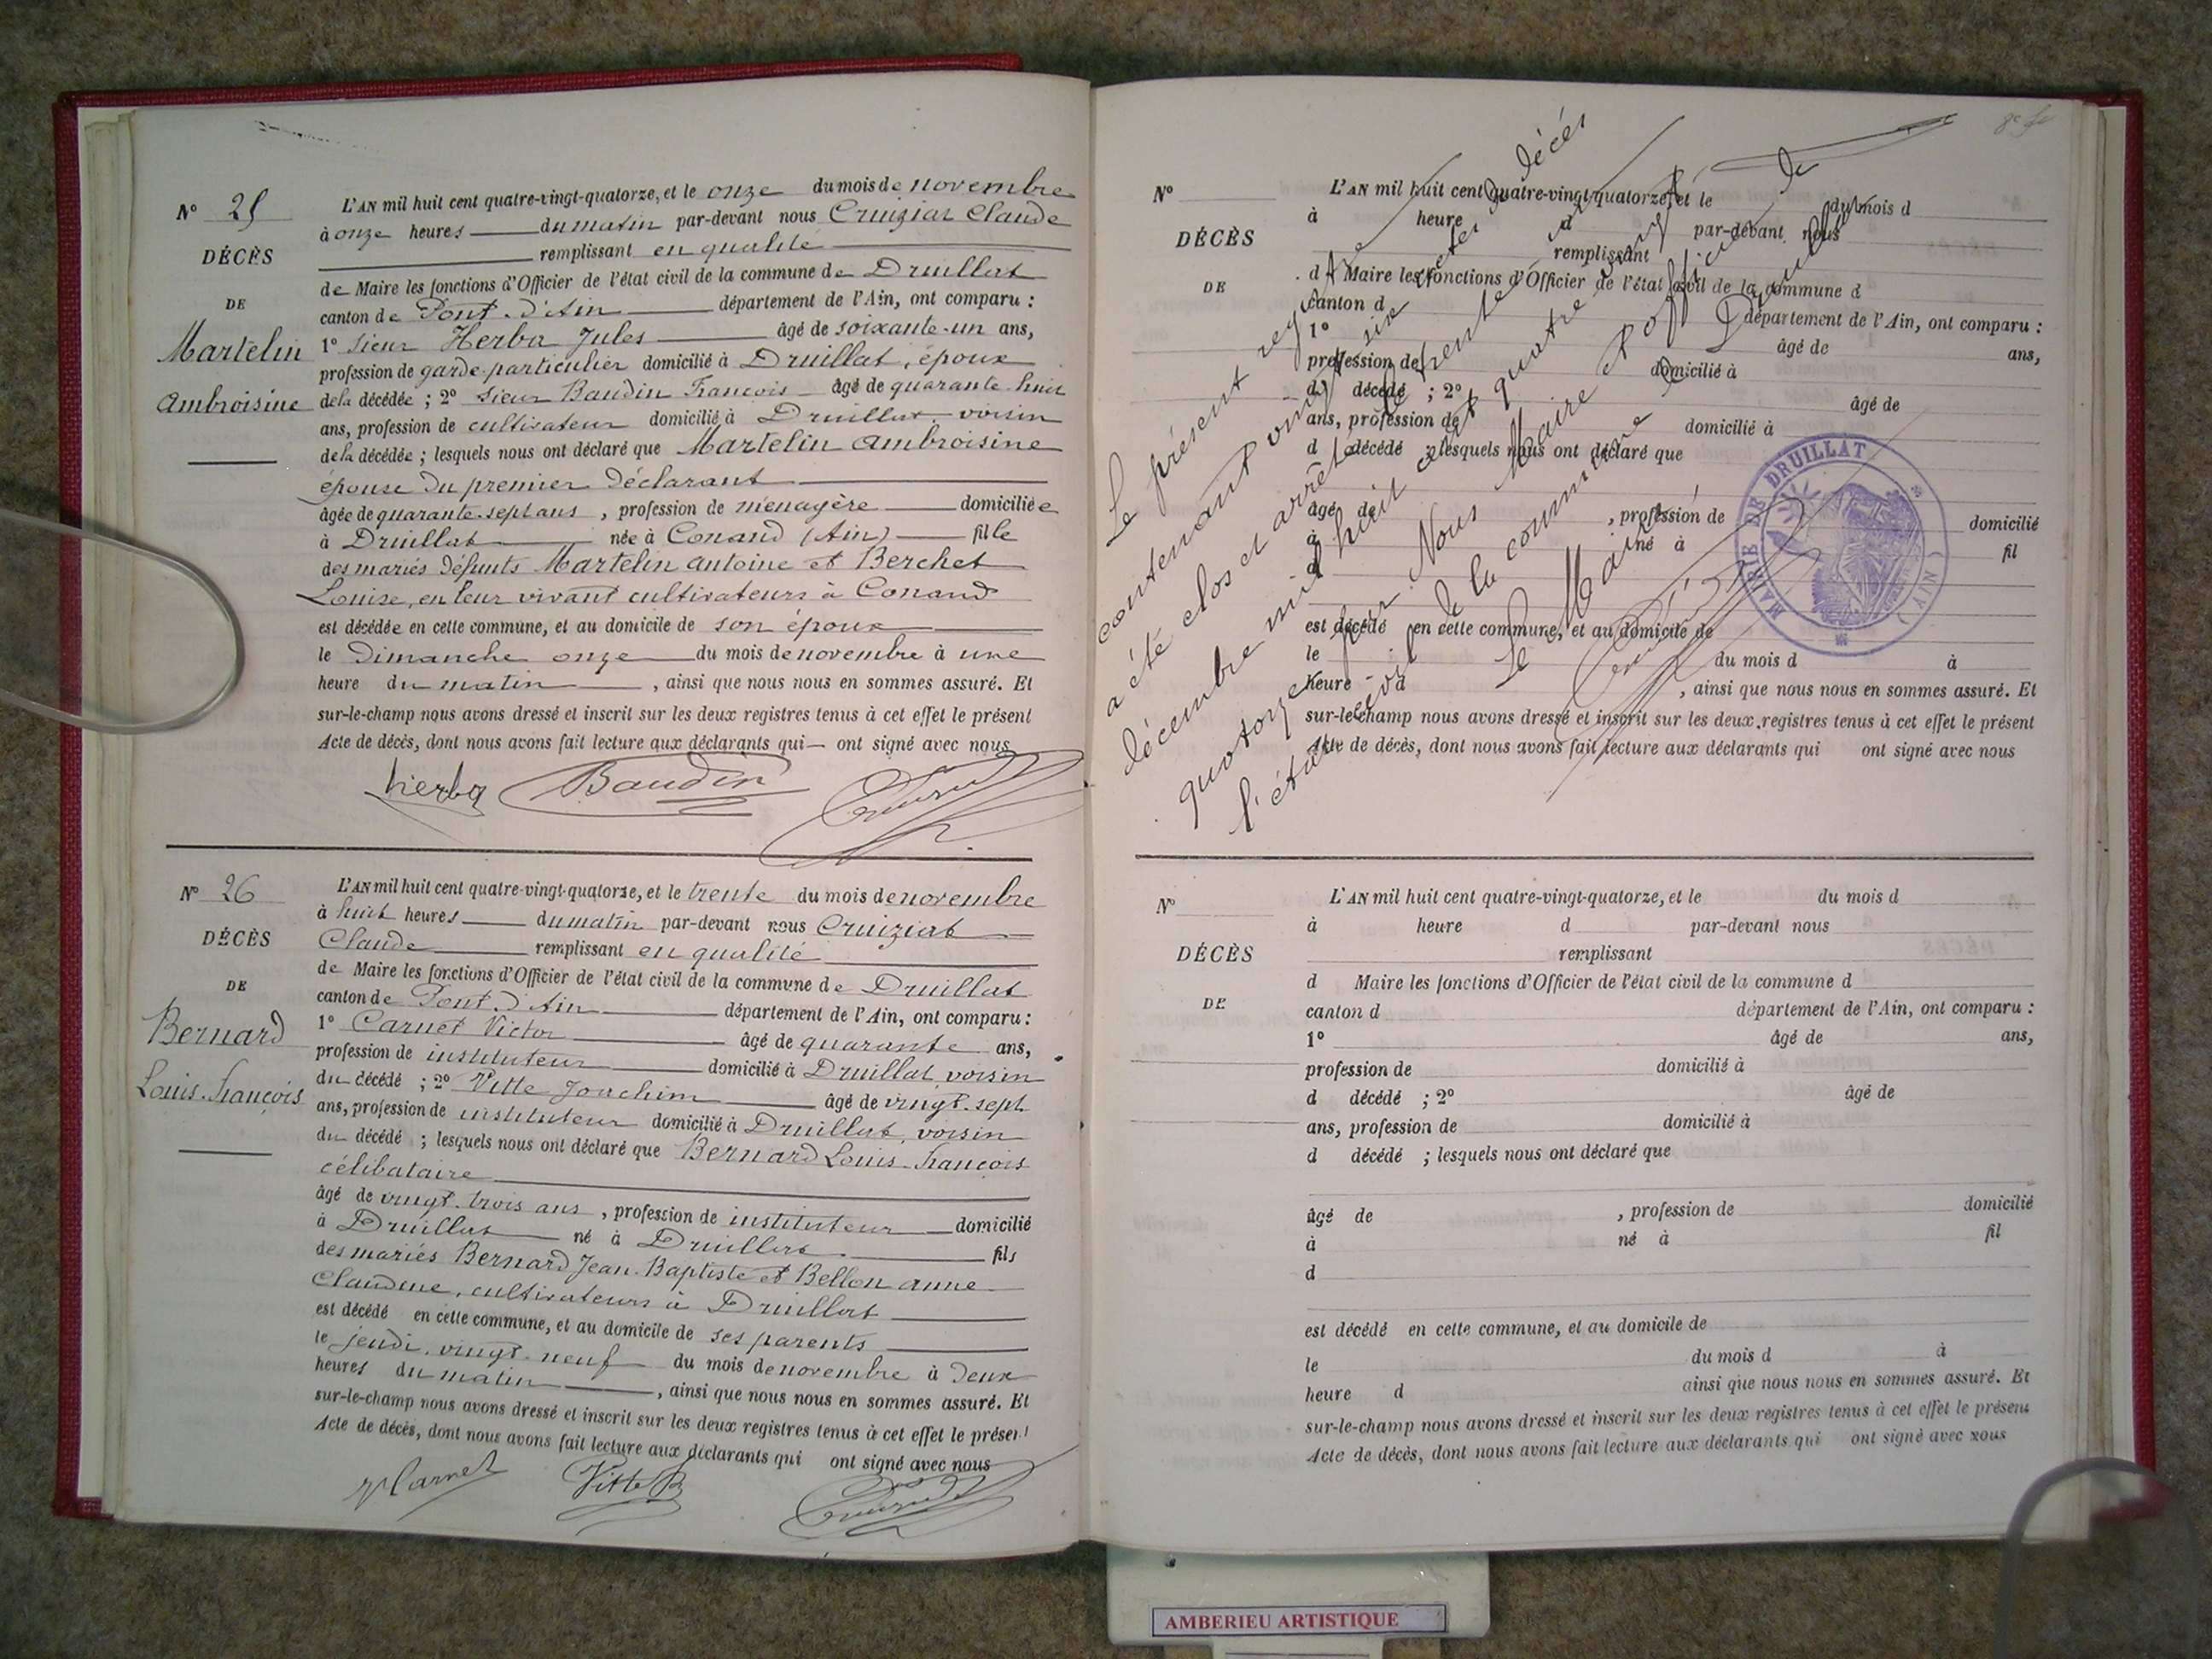 N° 25
DÉCÈS
DE
Martelin
Ambroisine
L'AN mil huit cent quatre-vingt-quatorze, et le onze du mois de novembre
à onze heures du matin par-devant nous Cruiziat Claude
remplissant en qualité
de Maire les fonctions d'Officier de l'état civil de la commune de Druillat
canton de Pont-d'Ain département de l'Ain, ont comparu :
1° sieur Herba Jules âgé de soixante-un ans,
profession de garde-particulier domicilié à Druillat, époux
de la décédée ; 2° sieur Baudin François âgé de quarante-huit
ans, profession de cultivateur domicilié à Druillat, voisin
de la décédée ; lesquels nous ont déclaré que Martelin Ambroisine
épouse du premier déclarant
âgée de quarante-sept ans, profession de ménagère domiciliée
à Druillat née à Conand (Ain) fille
des mariés défunts Martelin Antoine et Berchet
Louise, en leur vivant cultivateurs à Conand
est décédée en cette commune, et au domicile de son époux
le Dimanche onze du mois de novembre à une
heure du matin, ainsi que nous nous en sommes assuré. Et
sur-le-champ nous avons dressé et inscrit sur les deux registres tenus à cet effet le présent
Acte de décès, dont nous avons fait lecture aux déclarants qui ont signé avec nous
herba Baudin Cruiziat
N° 26
DÉCÈS
DE
Bernard
Louis-François
L'AN mil huit cent quatre-vingt-quatorze, et le trente du mois de novembre
à huit heures du matin par-devant nous Cruiziat
Claude remplissant en qualité
de Maire les fonctions d'Officier de l'état civil de la commune de Druillat
canton de Pont-d'Ain département de l'Ain, ont comparu :
1° Carnet Victor âgé de quarante ans,
profession de instituteur domicilié à Druillat, voisin
du décédé ; 2° Vitte Joachim âgé de vingt-sept
ans, profession de instituteur domicilié à Druillat, voisin
du décédé ; lesquels nous ont déclaré que Bernard Louis-François
célibataire
âgé de vingt-trois ans, profession de instituteur domicilié
à Druillat né à Druillat fils
des mariés Bernard Jean-Baptiste et Bellon Anne
Claudine, cultivateurs à Druillat
est décédé en cette commune, et au domicile de ses parents
le jeudi, vingt-neuf du mois de novembre à deux
heures du matin, ainsi que nous nous en sommes assuré. Et
sur-le-champ nous avons dressé et inscrit sur les deux registres tenus à cet effet le présent
Acte de décès, dont nous avons fait lecture aux déclarants qui ont signé avec nous
V Carnet Vitte Cruiziat
N°
DÉCÈS
DE
L'AN mil huit cent quatre-vingt-quatorze, et le du mois d
à heure d par-devant nous
remplissant
d Maire les fonctions d'Officier de l'état civil de la commune d
canton d département de l'Ain, ont comparu :
1° âgé de ans,
profession de domicilié à
d décédé ; 2° âgé de
ans, profession de domicilié à
d décédé ; lesquels nous ont déclaré que
âgé de , profession de domicilié
à né à fil
d
est décédé en cette commune, et au domicile de
le du mois d à
heure d , ainsi que nous nous en sommes assuré. Et
sur-le-champ nous avons dressé et inscrit sur les deux registres tenus à cet effet le présent
Acte de décès, dont nous avons fait lecture aux déclarants qui ont signé avec nous
Le présent registre de décès
contenant vingt six actes
a été clos et arrêté le trente un
décembre mil huit cent quatre-vingt-
quatorze par Nous Maire et officier de
l'état civil de la commune de Druillat
Le Maire
Cruiziat
MAIRIE DE DRUILLAT
(AIN)
N°
DÉCÈS
DE
L'AN mil huit cent quatre-vingt-quatorze, et le du mois d
à heure d par-devant nous
remplissant
d Maire les fonctions d'Officier de l'état civil de la commune d
canton d département de l'Ain, ont comparu :
1° âgé de ans,
profession de domicilié à
d décédé ; 2° âgé de
ans, profession de domicilié à
d décédé ; lesquels nous ont déclaré que
âgé de , profession de domicilié
à né à fil
d
est décédé en cette commune, et au domicile de
le du mois d à
heure d ainsi que nous nous en sommes assuré. Et
sur-le-champ nous avons dressé et inscrit sur les deux registres tenus à cet effet le présent
Acte de décès, dont nous avons fait lecture aux déclarants qui ont signé avec nous
AMBERIEU ARTISTIQUE